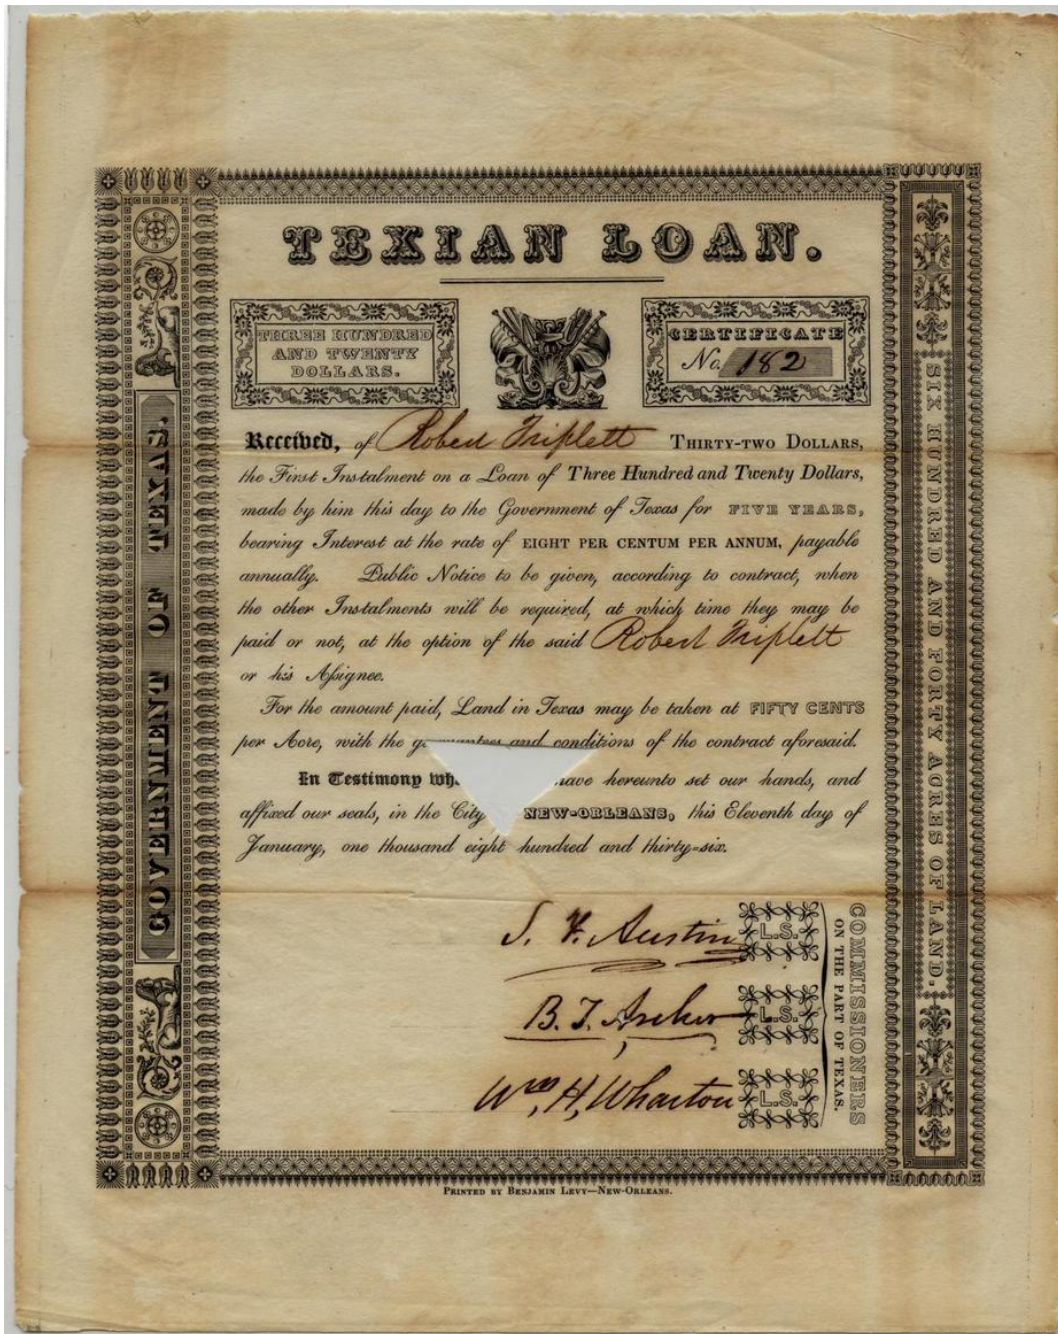 TEXIAN LOAN.
THREE HUNDRED
AND TWENTY
DOLLARS.
CERTIFICATE
No. 182
Received, of Robert Triplett THIRTY-TWO DOLLARS,
the First Instalment on a Loan of Three Hundred and Twenty Dollars,
made by him this day to the Government of Texas for FIVE YEARS,
bearing Interest at the rate of EIGHT PER CENTUM PER ANNUM, payable
annually. Public Notice to be given, according to contract, when
the other Instalments will be required, at which time they may be
paid or not, at the option of the said Robert Triplett
or his Assignee.
For the amount paid, Land in Texas may be taken at FIFTY CENTS
per Acre, with the guarantees and conditions of the contract aforesaid.
In Testimony have hereunto set our hands, and
affixed our seals, in the City NEW-ORLEANS, this Eleventh day of
January, one thousand eight hundred and thirty-six.
S. F. Austin L.S.
B. T. Archer L.S.
Wm. H. Wharton L.S.
COMMISSIONERS
ON THE PART OF TEXAS.
GOVERNMENT OF TEXAS.
SIX HUNDRED AND FORTY ACRES OF LAND.
PRINTED BY BENJAMIN LEVY—NEW-ORLEANS.